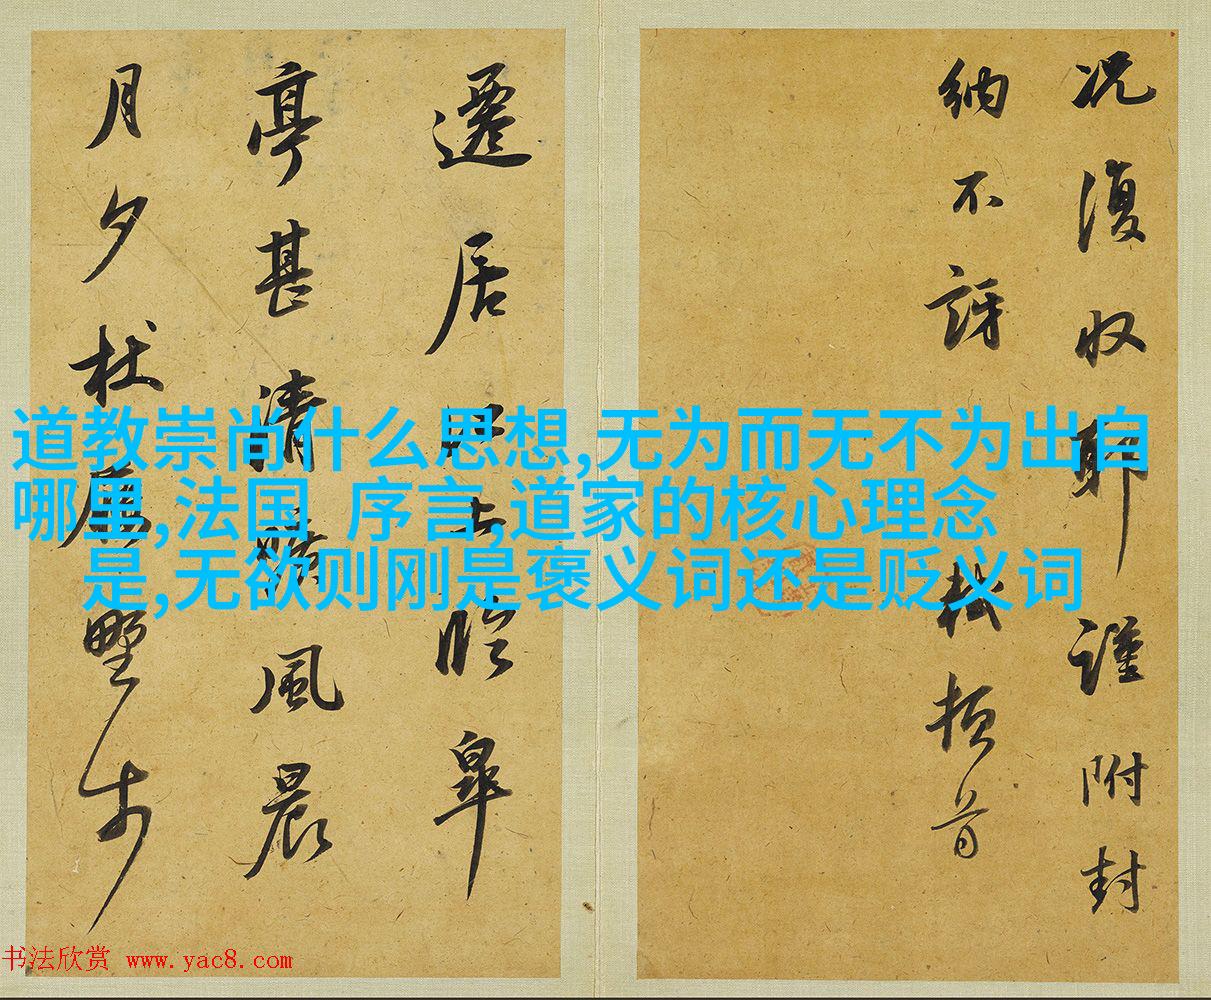 况復収耶謹附封
納不訝軾頓首
遷居上臨皐
亭甚清風晨
月夕杖野步
道教崇尚什么思想,无为而无不为出自
哪里,法国 序言,道家的核心理念
是,无欲则刚是褒义词还是贬义词
书法欣赏 www.yac8.com